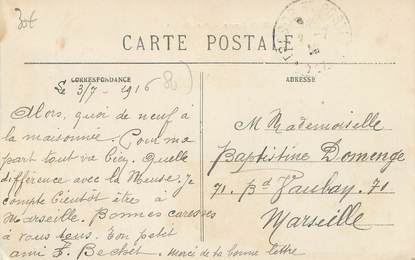 30€
CARTE POSTALE
CORRESPONDANCE
ADRESSE
Le 3/7 - 1916
Alors, quoi de neuf à
la maisonnée. Pour ma
part tout va bien. Quelle
différence avec la Meuse. Je
compte bientôt être à
Marseille. Bonnes caresses
à vous tous. Ton petit
ami F. Bechet. Merci de ta bonne lettre
M Mademoiselle
Baptistine Domenge
71. Bd Vauban. 71
Marseille